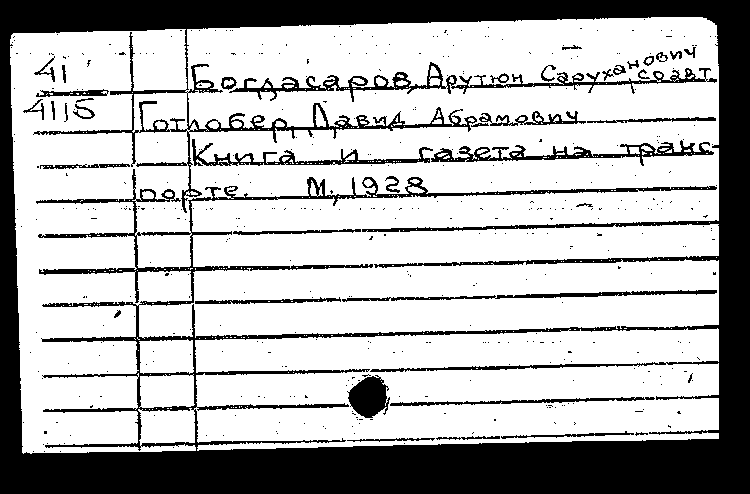 41 Богдасаров, Арутюн Саруханович, соавт
4115 Готлобер, Давид Абрамович
Книга и газета на транс-
порте. М., 1928